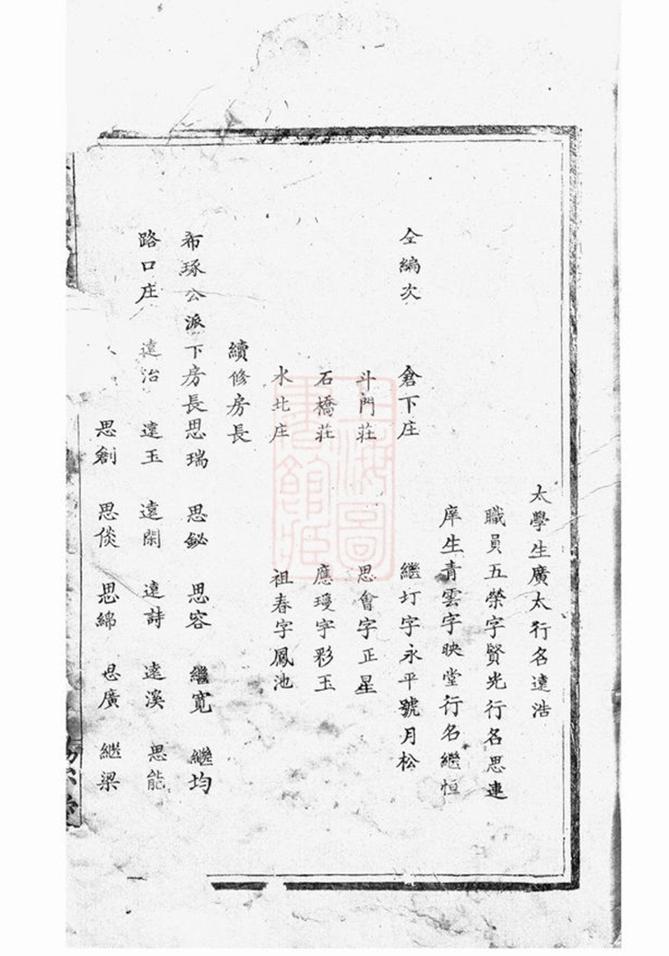 太學生廣太行名遠浩
職員五榮字賢光行名思連
庠生青雲字映堂行名繼恒
仝編次 倉下庄 繼圢字永平號月松
斗門莊 思會字正星
石橋莊 應璦字彩玉
水北庄 祖春字鳳池
續修房長
布琢公派下房長思瑞 思鉍 思容 繼寬 繼均
路口庄 遠治 遠玉 遠閑 遠詩 遠溪 思能
思創 思倓 思綿 思廣 繼梁
上海圖書館藏